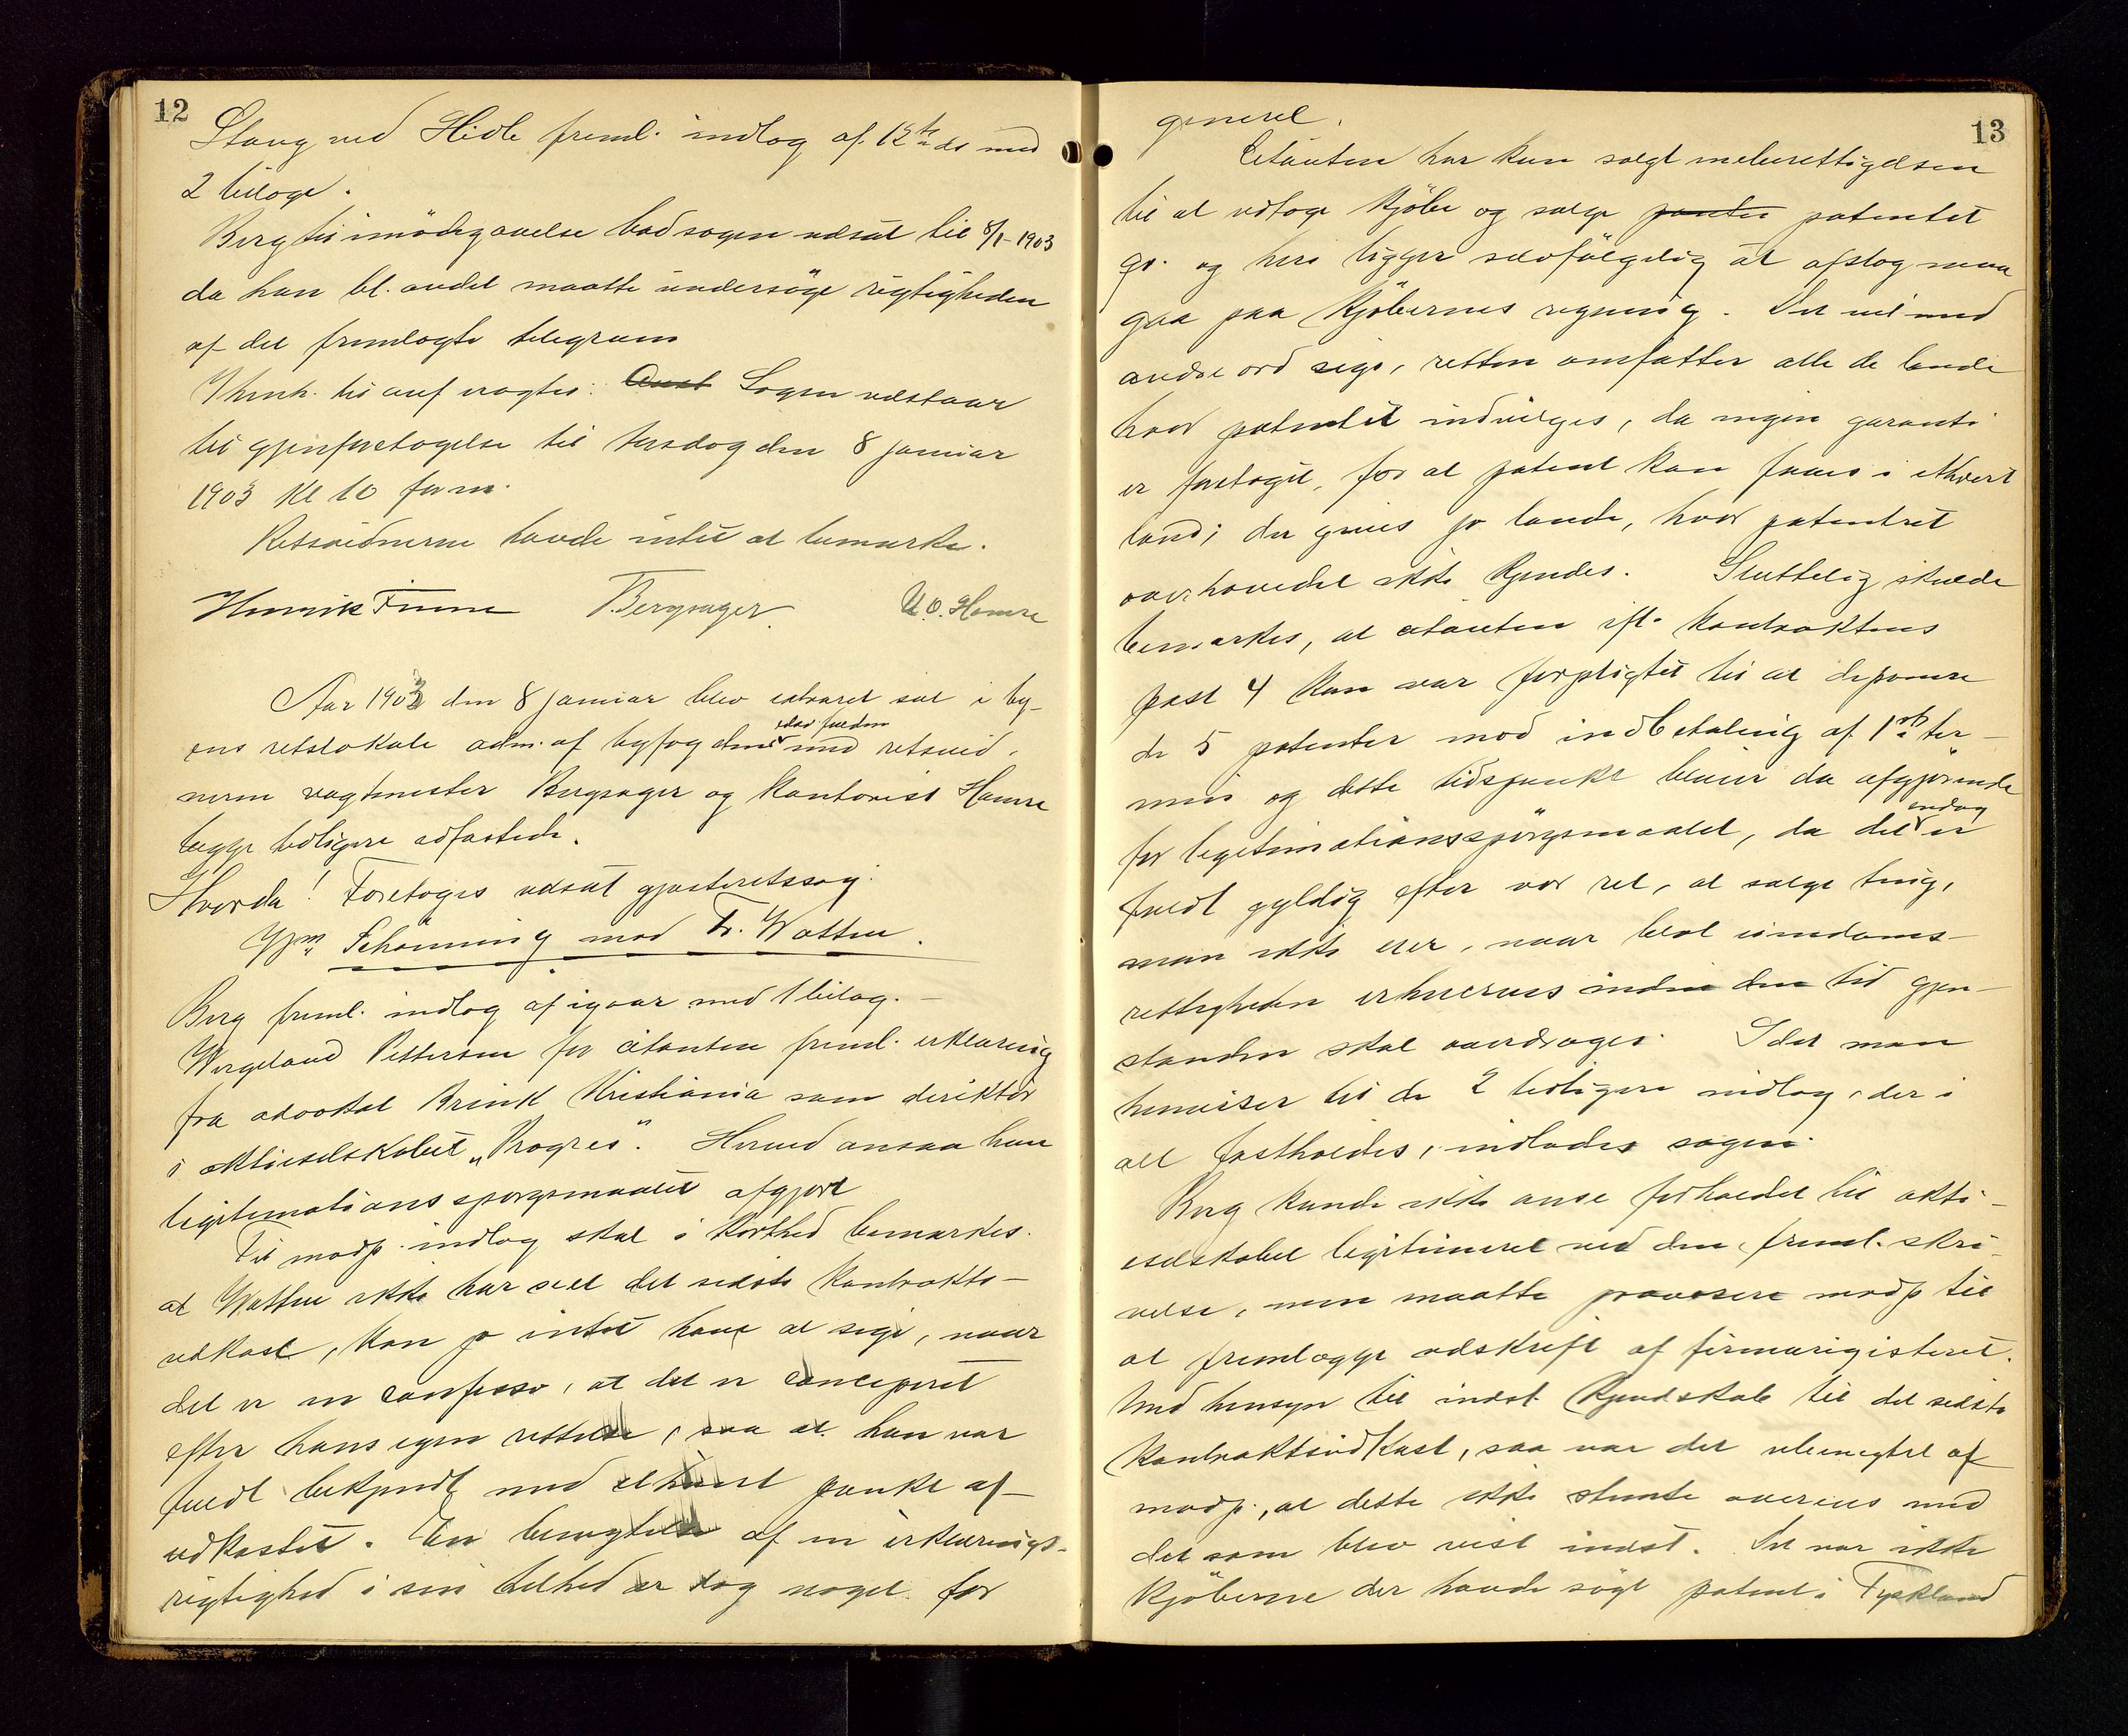 12
Stang ved Hidle freml. indlæg af 12te ds med
2 bilage.
Berg til imødegaaelse bad sagen udsat til 8/1-1903
da han bl. andet maatte undersøge rigtigheden
af det fremlagte telegram
Thi auf vagtes: Sagen udstaar
til gjenforetagelse til torsdag den 8 januar
1903 Kl 10 form.
Retsvidnerne havde intet at bemærke.
Henrik Finne Bergsager U. O. Hamre
Aar 1903 den 8 januar blev extraret sat i by-
ens retslokale adm. af byfogden med retsvid-
nerne vagtmester Bergsager og kontorist Hamre
begge tidligere edfæstede.
Hvorda! Foretoges udsat gjæsteretssag
Gjm Schanning mod Fr. Watten.
Berg freml. indlæg af igaar med 1 bilag. -
Wergeland Pettersen for citanten freml. erklæring
fra advokat Brink Kristiania som direktør
i aktieselskabet „Progres". Herved ansaa han
legitimationsspørgsmaalet afgjort
Til modp. indlæg skal i korthed bemærkes.
at Watten ikke har seet det sidste kontrakts-
udkast, kan jo intet have at sige, naar
det er in confesso, at det er conciperet
efter hans egen rettelse, saa at han var
fuldt bekjendt med ethvert punkt af
udkastet. En benægtelse af en erklærings
rigtighed i sin helhed er dog noget for
13
generel.
Citanten har kun solgt meleretttigelsen
til at udtage kjøbe og sælge patentet
go. og heri ligger selvfølgelig at afslag maa
gaa paa kjøbernes regning. Det vil med
andre ord sige, retten omfatter alle de lande
hvor patentet indvilges, da ingen garanti
er foretaget, for at patent kan faaes i ethvert
land; der gives jo lande, hvor patentret
overhovedet ikke kjendes. Sluttelig skulde
bemærkes, at citanten ifl. kontraktens
post 4 kun var forpligtet til at deponere
de 5 patenter mod indbetaling af 1ste ter-
min og dette tidspunkt bliver da afgjørende
for legitimationsspørgsmaalet, da det endog er
fuldt gyldig efter vor ret, at sælge ting,
man ikke eier, naar blot eiendoms-
rettigheden erhverves inden den tid gjen-
standen skal overdrages. Idet man
henviser til de 2 tidligere indlæg, der i
alt fastholdes, indlades sagen.
Berg kunde ikke anse forholdet til akti-
eselskabet legitimeret ved den freml. skri-
velse, men maatte provosere modp til
at fremlægge udskrift af firmaregisteret.
Med hensyn til indst. kjendskab til det sidste
kontraktsudkast, saa var det ubenegtet af
modp., at dette ikke stemte overens med
det som blev vist indst. Det var ikke
kjøberne der havde søgt patent i Tyskland